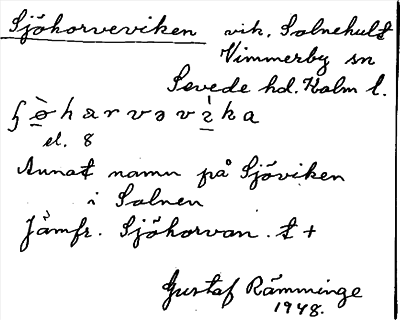 Sjöhorveviken vik. Solnehult
Vimmerby sn
Sevede hd. Kalm l.
el. 8
Annat namn på Sjöviken
i Solnen
Jämfr. Sjöhorvan. t +
Gustaf Rämminge
1948.